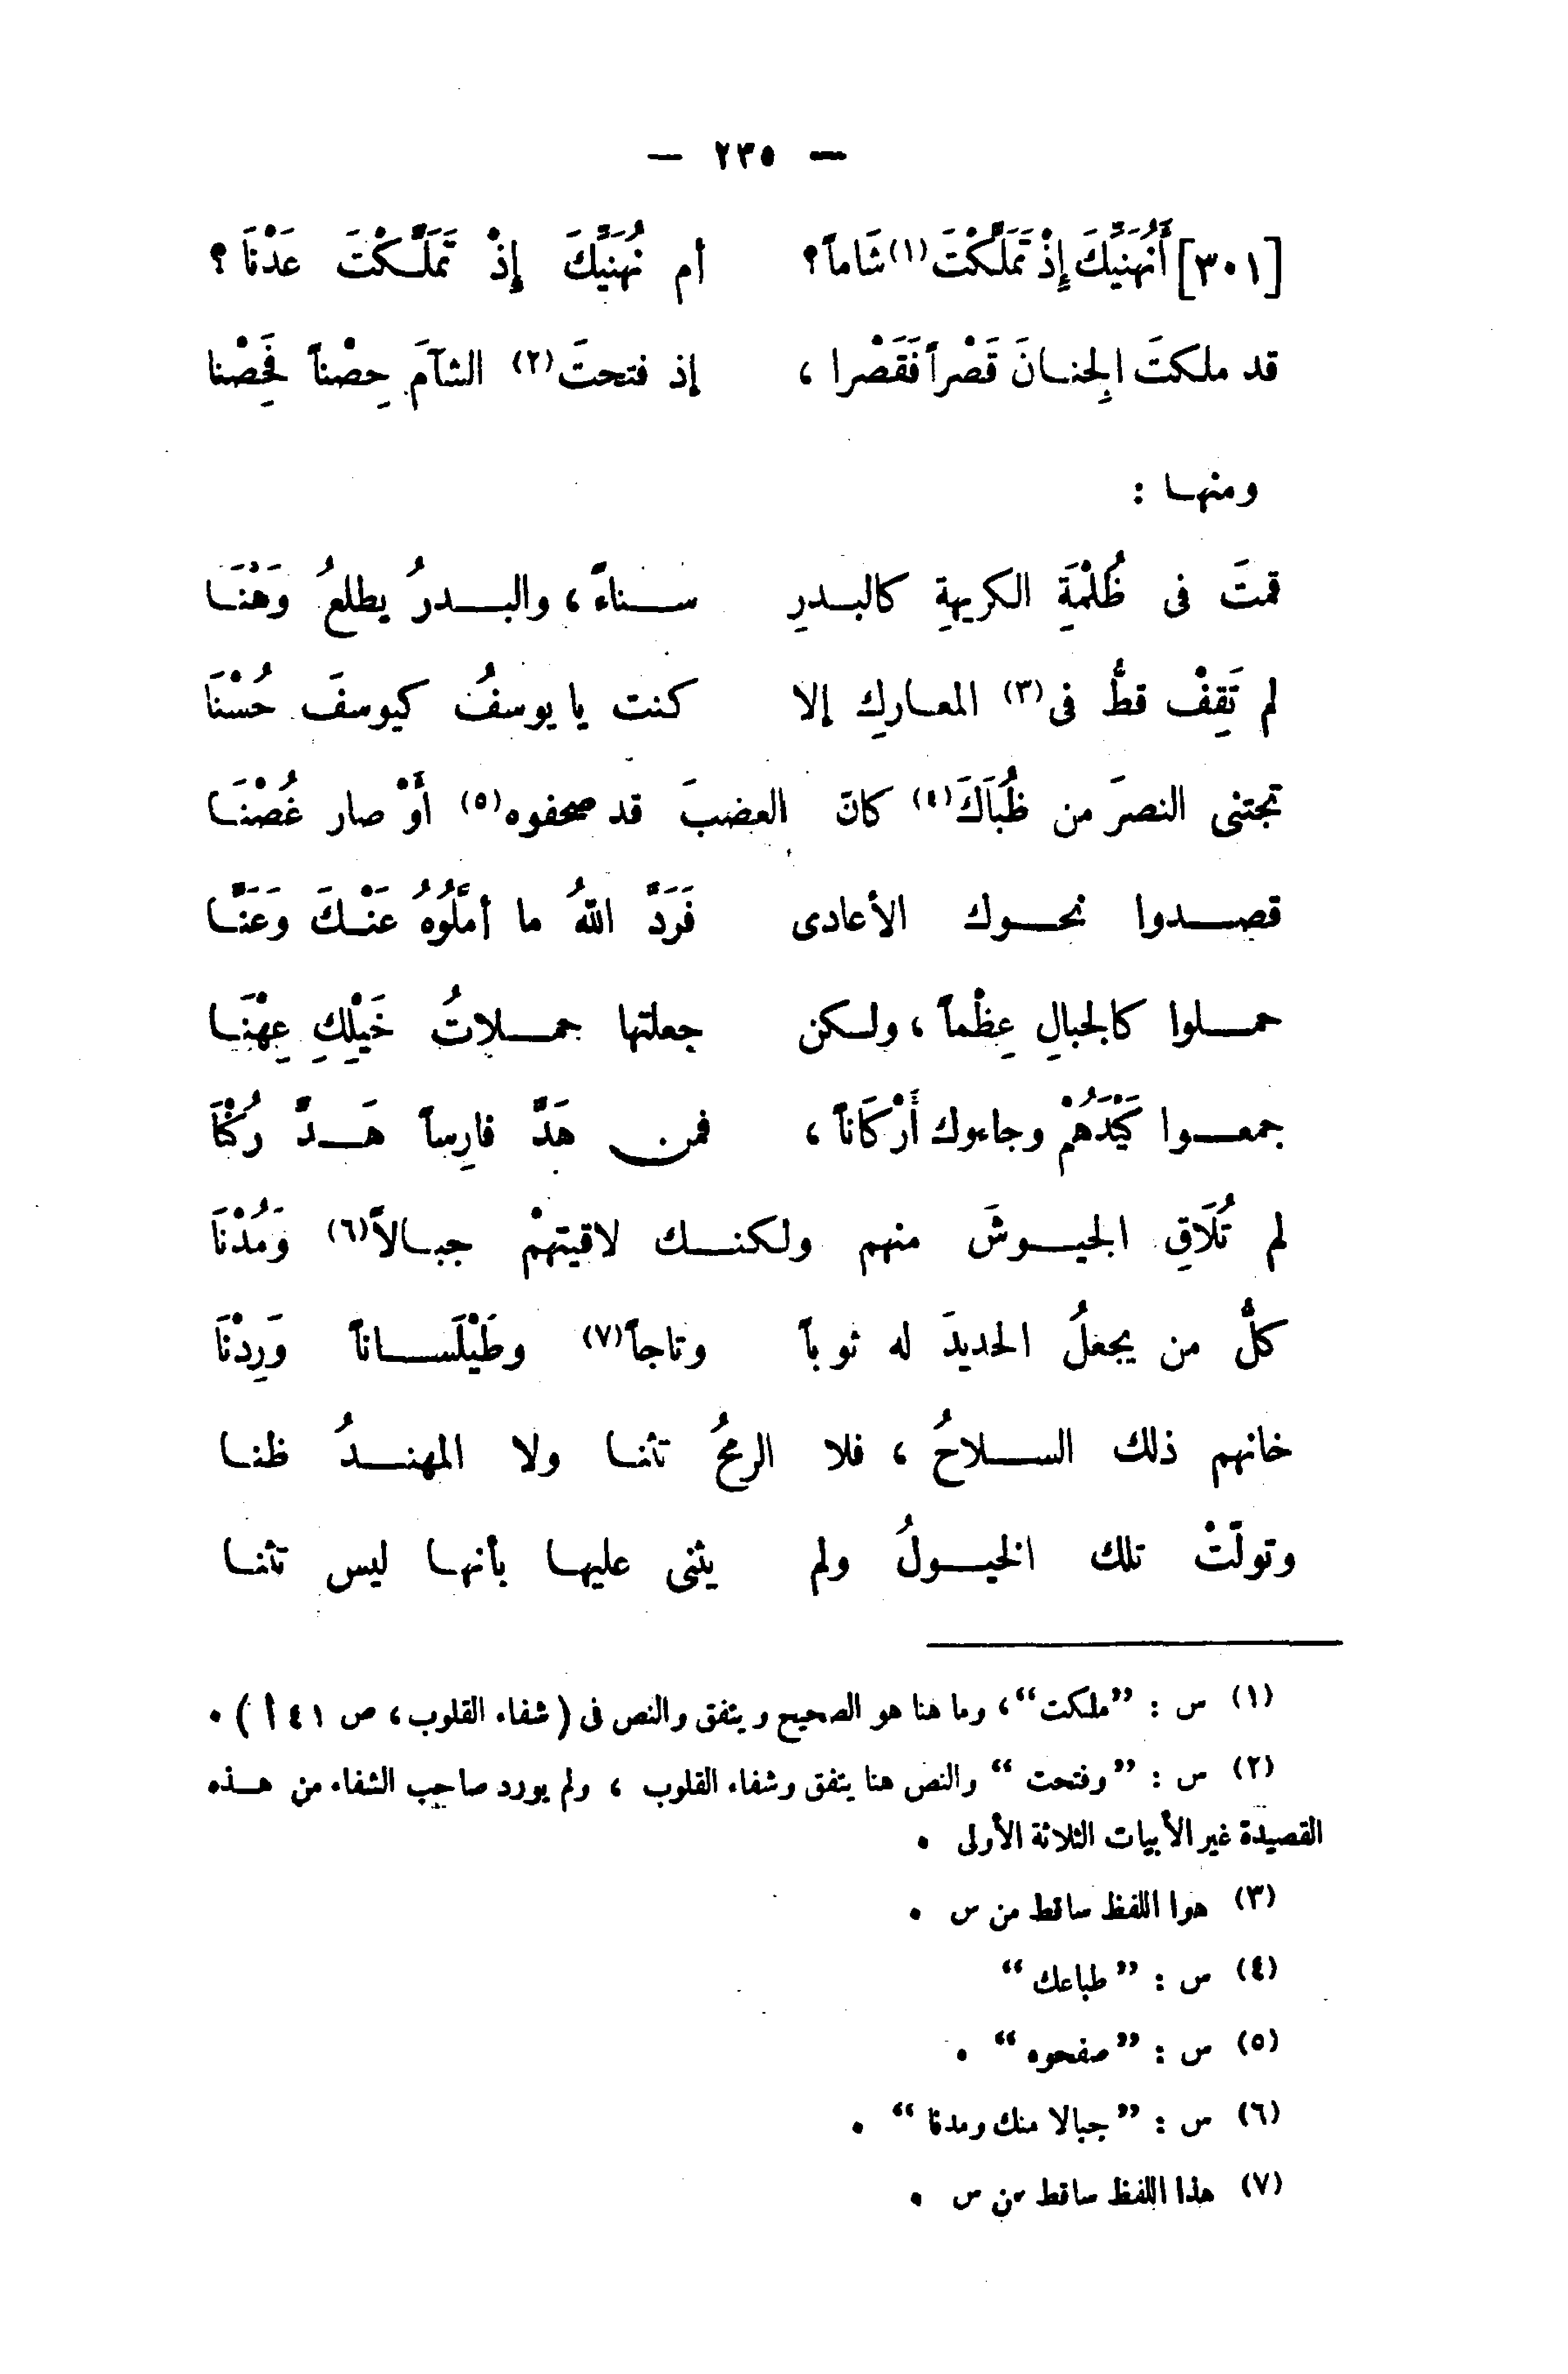 — ٢٣٥ —
[٣٠١] أَنُهَنِّيكَ إِذْ تَمَلَّكْتَ(١) شَاماً؟ أم نُهَنِّيكَ إِذْ تَمَلَّكْتَ عَدْنَا؟
قد ملكتَ الجِنانَ قَصْراً فَقَصْرا، إذ فتحتَ(٢) الشآمَ حِصْناً فَحِصْنا
ومنها :
قمتَ فى ظُلْمَةِ الكريهةِ كالبدرِ سناءً، والبدرُ يطلعُ وَهْنَا
لم تَقِفْ قطُّ فى(٣) المعاركِ إلا كنت يا يوسفُ كيوسفَ حُسْنَا
تجتنى النصرَ من ظُبَاكَ(٤) كانَ العضبَ قد صحفوه(٥) أَوْ صار غُصْنَا
قصدوا نحوك الأعادى فَرَدَّ اللهُ ما أمَّلُوُهُ عَنْكَ وَعَنَّا
حملوا كالجبالِ عِظْماً، ولكن جعلتها حملاتُ خَيْلِكِ عِهْنَا
جمعوا كَيْدَهُمْ وجاءوك أَرْكَاناً، فمن هَدَّ فارِساً هَدَّ رُكْنَا
لم تُلَاقِ الجيوشَ منهم ولكنك لاقيتهمْ جبالاً(٦) وَمُدْنَا
كلُّ من يجعلُ الحديدَ له ثوباً وتاجاً(٧) وطَيْلَساناً وَرِدْنَا
خانهم ذلك السلاحُ، فلا الرمحُ تثنا ولا المهندُ ظنا
وتولّتْ تلك الخيولُ ولم يثنى عليها بأنها ليس تثنا
(١) س : ”ملكت“، وما هنا هو الصحيح ويتفق والنص فى (شفاء القلوب، ص ٤١ أ) .
(٢) س : ”وفتحت“ والنص هنا يتفق وشفاء القلوب، ولم يورد صاحب الشفاء من هذه
القصيدة غير الأبيات الثلاثة الأولى .
(٣) هوا اللفظ ساقط من س .
(٤) س : ”طباعك“
(٥) س : ”صفحوه“ .
(٦) س : ”جبالا منك ومدنا“ .
(٧) هذا اللفظ ساقط من س .